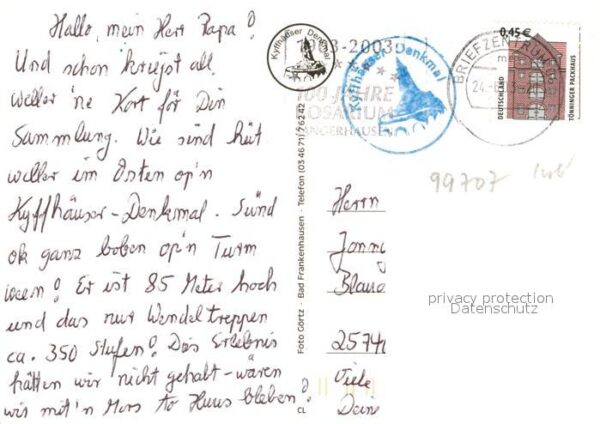 Hallo, mein Herr Papa!
Und schon kriegst all
weller 'ne Kort för Din
Sammlung. Wie sünd hüt
weller im Osten op'n
Kyffhäuser-Denkmal. Sünd
ok ganz boben op'n Turm
ween! Er ist 85 Meter hoch
und das nur Wendeltreppen
ca. 350 Stufen! Das Erlebnis
hätten wir nicht gehabt - wären
wir mit'n Mors to Huus bleben!
Kyffhäuser Denkmal
1903-2003
100 JAHRE
ROSARIUM
SANGERHAUSEN
Kyffhäuser Denkmal
BRIEFZENTRUM
24.
0,45 €
DEUTSCHLAND
TÖNNINGER PACKHAUS
99707
Foto Görtz · Bad Frankenhausen · Telefon (03 46 71) 26242
CL
Herrn
Blau
privacy protection
Datenschutz
2574
Viele